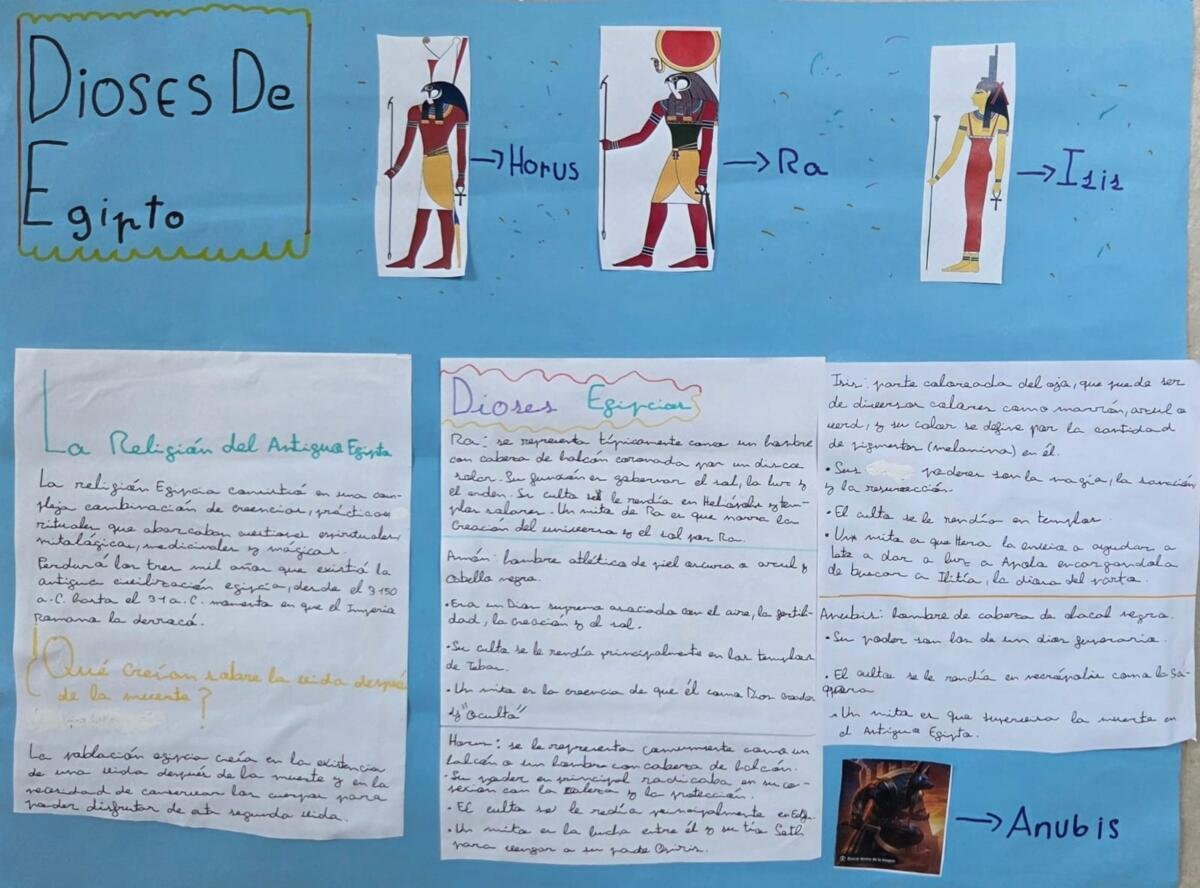 Dioses De
Egipto
→Horus
→Ra
→Isis
La Religión del Antiguo Egipto
La religión Egipcia consistió en una com-
pleja combinación de creencias, prácticas
rituales que abarcaban cuestiones espirituales,
mitológicas, medicinales y mágicas.
Perduró los tres mil años que existió la
antigua civilización egipcia, desde el 3150
a.C. hasta el 31 a.C. momento en que el Imperio
Romano la derrocó.
¿Qué creían sobre la vida después
de la muerte?
La población egipcia creía en la existencia
de una vida después de la muerte y en la
necesidad de conservar los cuerpos para
poder disfrutar de esta segunda vida.
Dioses Egipcios
Ra: se representa típicamente como un hombre
con cabeza de halcón coronada por un disco
solar. Su función es gobernar el sol, la luz y
el orden. Su culto se le rendía en Heliópolis y tem-
plos solares. Un mito de Ra es que narra la
creación del universo y el sol por Ra.
Amón: hombre atlético de piel oscura o azul y
cabello negro.
• Era un Dios supremo asociado con el aire, la fertili-
dad, la creación y el sol.
• Su culto se le rendía principalmente en los templos
de Tebas.
• Un mito es la creencia de que él como Dios creador
y "Oculto"
Horus: se le representa comúnmente como un
halcón o un hombre con cabeza de halcón.
• Su poder en principal radicaba en su co-
nexión con la realeza y la protección.
• El culto se le redía principalmente en Edfu.
• Un mito es la lucha entre él y su tío Seth
para vengar a su padre Osiris.
Isis: parte coloreada del ojo, que puede ser
de diversos colores como marrón, azul o
verd, y su color se define por la cantidad
de pigmentos (melanina) en él.
• Sus poderes son la magia, la sanación
y la resurrección.
• El culto se le rendía en templos.
• Un mito es que Hera la envía a ayudar a
Leto a dar a luz a Apolo encargándola
de buscar a Ilitía, la diosa del parto.
Anubis: hombre de cabeza de chacal negro.
• Su poder son los de un dios funerario.
• El culto se le rendía en necrópolis como la Sa-
qqara
• Un mito es que supervisa la muerte en
el Antiguo Egipto.
→Anubis